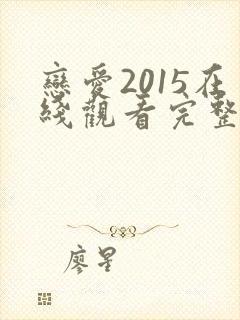 戀愛2015在
綫觀看完整
廖星